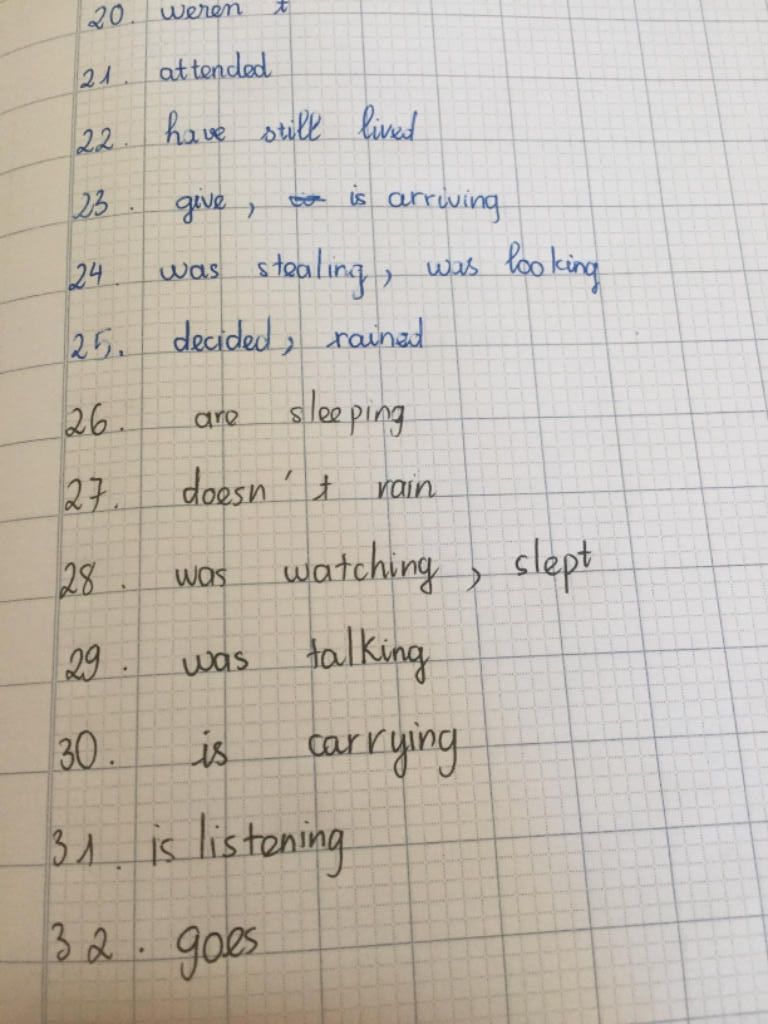 20. weren't
21. attended
22. have still lived
23. give, is arriving
24. was stealing, was looking
25. decided, rained
26. are sleeping
27. doesn't rain
28. was watching, slept
29. was talking
30. is carrying
31. is listening
32. goes